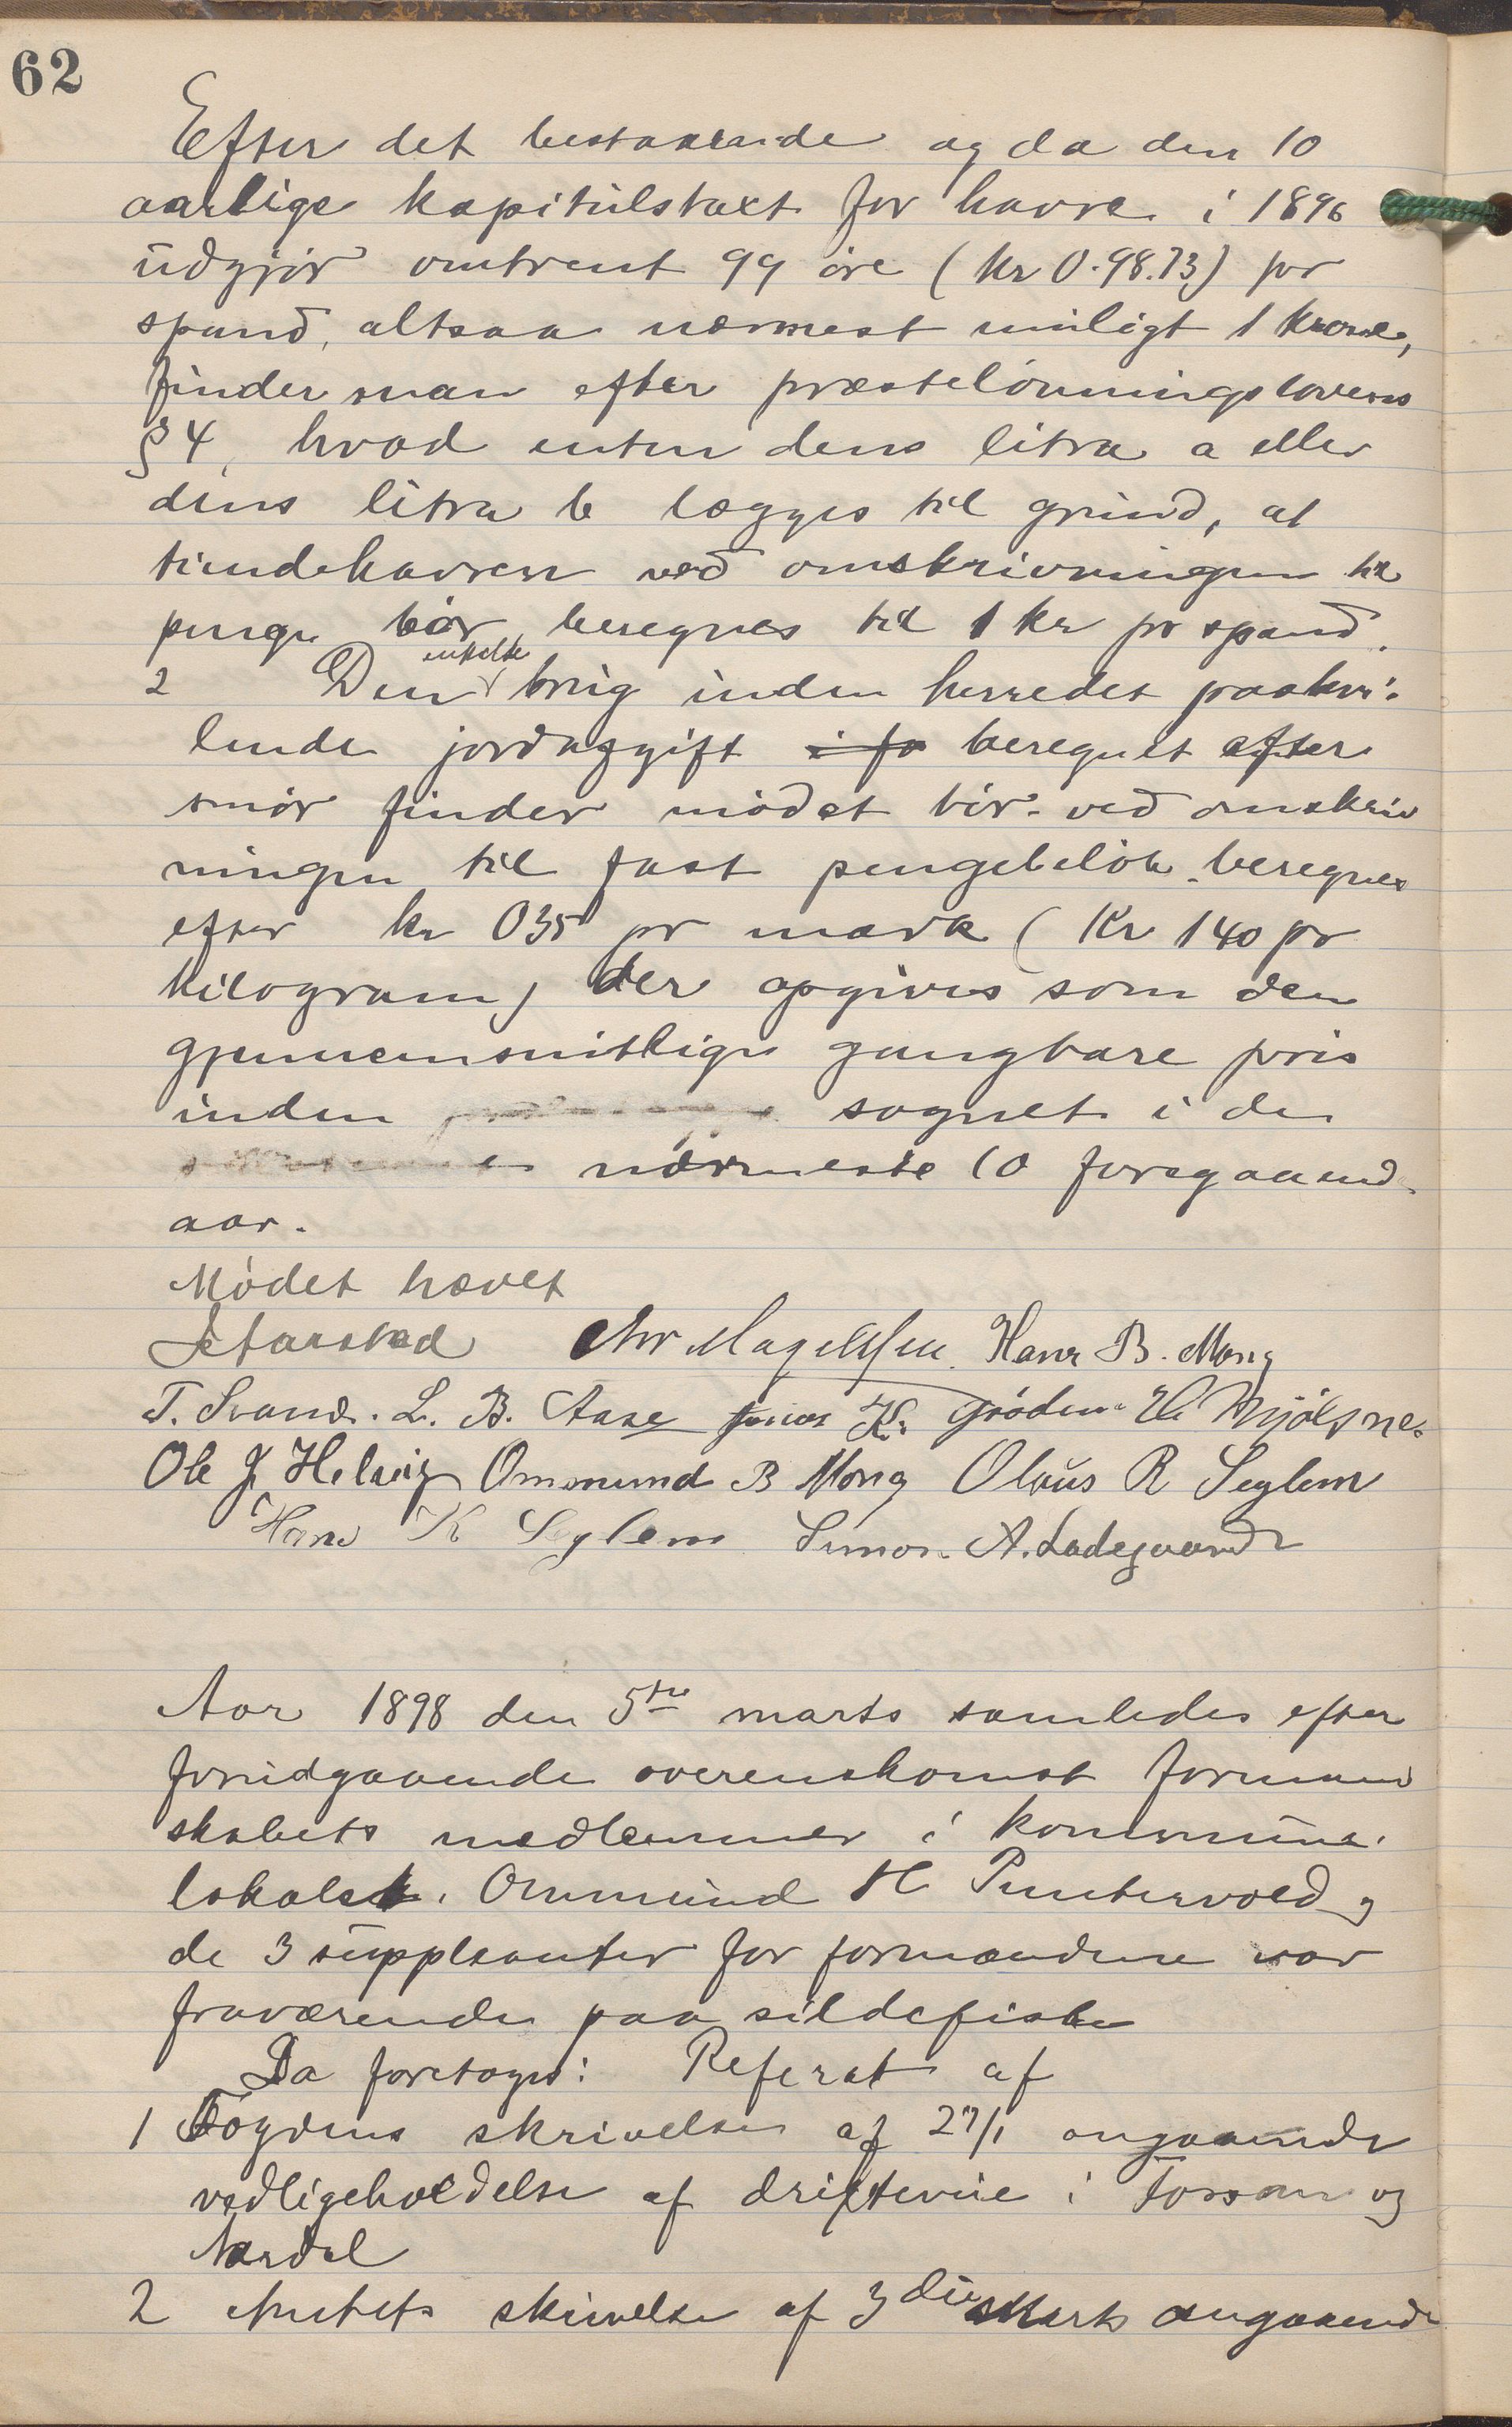 62
Efter det bestaaende og da den 10
aarlige kapitulstaxt for havre i 1896
udgjør omtrent 99 øre (kr 0.98.73) pr
spand, altsaa nærmest muligt 1 krone,
finder man efter præstelønningslovens
§ 4, hvad enten dens litra a eller
dens litra b lægges til grund, at
tiendehavren ved omskrivningen til
penge bør beregnes til 1 kr pr spand.
2 Den enkelte brug inden herredet paahvi-
lende jordavgift i fo beregnet efter
smør finder mødet bør ved omskriv
ningen til fast pengebeløb beregnes
efter kr 035 pr mark (Kr 140 pr
kilogram) der opgives som den
gjennemsnitlige gangbare pris
inden sognet i de
nærmeste 10 foregaaende
aar.
Mødet hævet
Chr Magelssen. Hans B. Mong
T. Svand. L. B. Aase Jonas K. Grøden H. Mjølsnes
Ole J Helvig Ommund B Mong Olaus R Seglem
Hans K Seglem Simon A. Ladegaard
Aar 1898 den 5te marts samledes efter
forudgaaende overenskomst formand
skabets medlemmer i kommune-
lokalet. Ommund H Puntervold og
de 3 suppleanter for formændene var
fraværende paa sildefiske
Da foretoges: Referat af
1 Fogdens skrivelse af 27/1 angaaende
vedligeholdelse af drifteveie i Forsan og
Aardal
2 Amtets skrivelse af 3die Marts angaaende